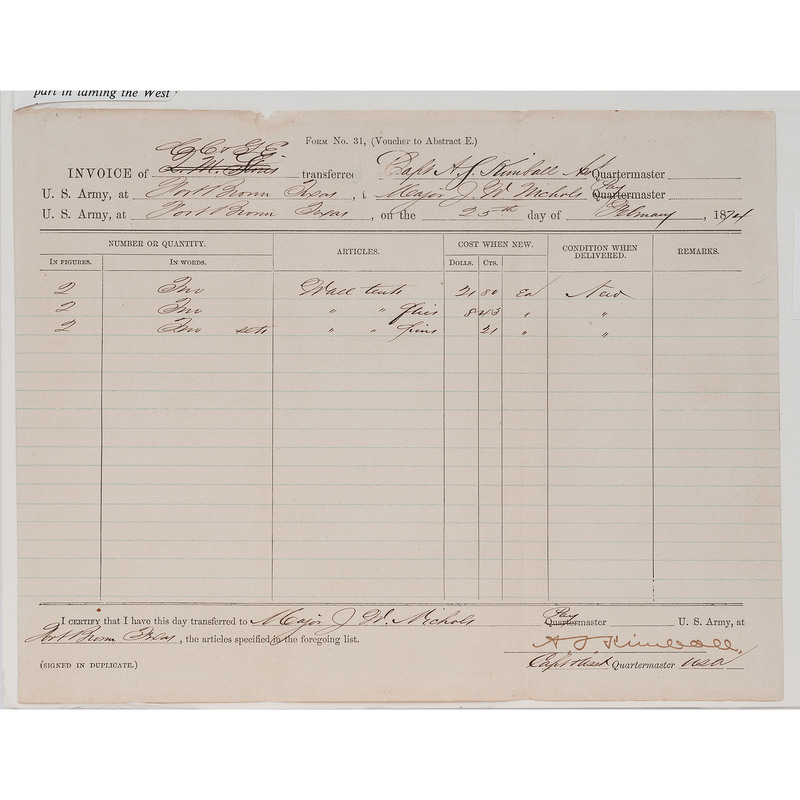 part in taming the West"
FORM NO. 31, (Voucher to Abstract E.)
C. C. & G. E.
INVOICE of Q. M. Stores transferred Capt A. S. Kimball Asst Quartermaster
U. S. Army, at Fort Brown Texas, Major J. W. Nichols Pay Quartermaster
U. S. Army, at Fort Brown Texas, on the 25th day of February, 1874
NUMBER OR QUANTITY. ARTICLES. COST WHEN NEW. CONDITION WHEN DELIVERED. REMARKS.
IN FIGURES. IN WORDS. DOLLS. CTS.
2 Two Wall tents 21 80 Ea New
2 Two " " flies 8 43 " "
2 Two sets " " pins 21 " "
I CERTIFY that I have this day transferred to Major J. W. Nichols Pay Quartermaster U. S. Army, at
Fort Brown Texas, the articles specified in the foregoing list.
A S Kimball.
(SIGNED IN DUPLICATE.) Capt & Asst Quartermaster USA